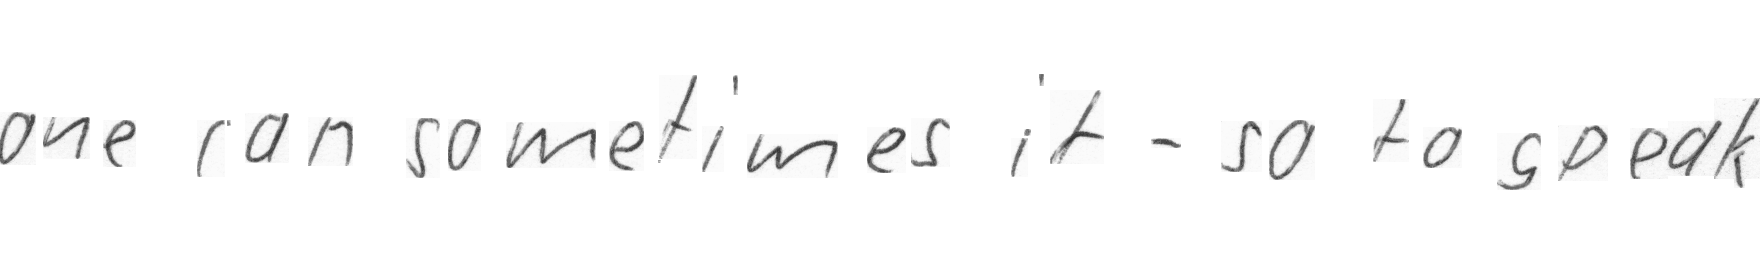 one can sometimes it - so to speak